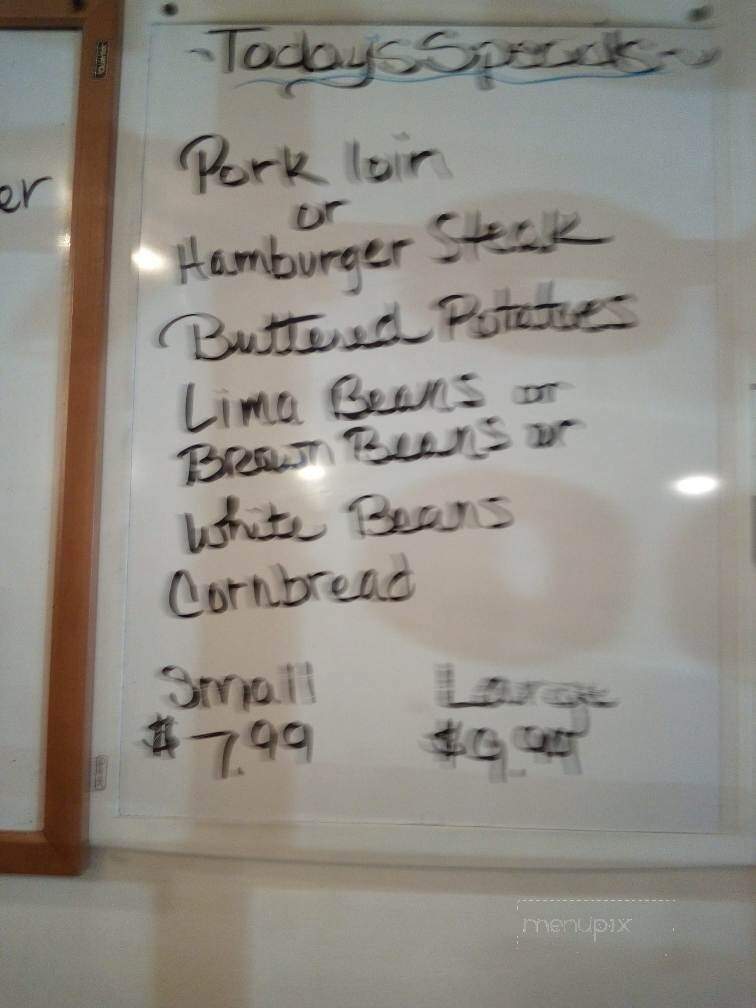 er
~Todays Specials~
Pork loin
or
Hamburger Steak
Buttered Potatoes
Lima Beans or
Brown Beans or
White Beans
Cornbread
Small Large
$7.99 $9.99
menupix